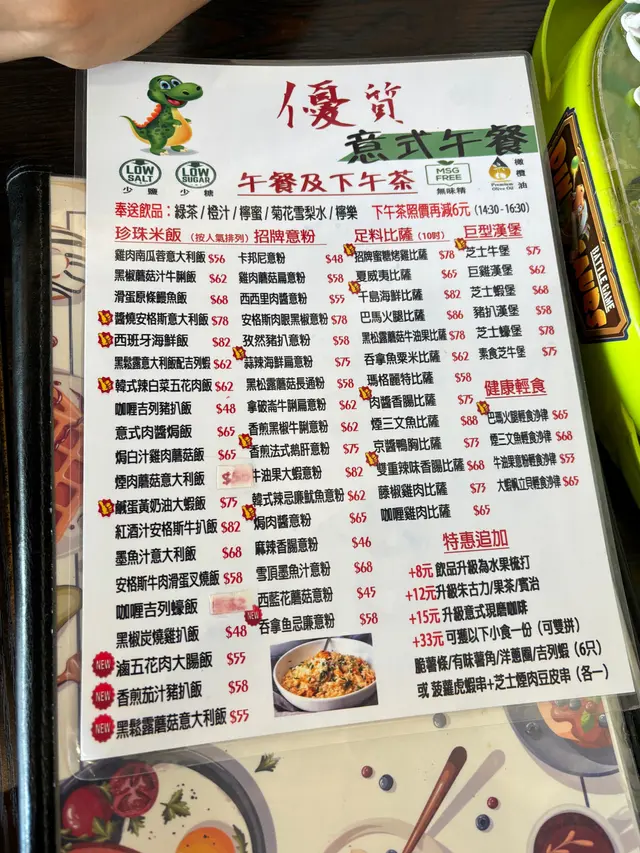 優質
意式午餐
LOW SALT
少鹽
LOW SUGAR
少糖
午餐及下午茶
MSG FREE
無味精
Premium Olive Oil
橄欖油
奉送飲品：綠茶/橙汁/檸蜜/菊花雪梨水/檸樂 下午茶照價再減6元 (14:30 - 16:30)
珍珠米飯 (按人氣排列)
雞肉南瓜蓉意大利飯 $56
黑椒蘑菇汁牛脷飯 $62
滑蛋原條鰻魚飯 $68
醬燒安格斯意大利飯 $78
西班牙海鮮飯 $82
黑鬆露意大利飯配吉列蝦 $62
韓式辣白菜五花肉飯 $62
咖喱吉列豬扒飯 $48
意式肉醬焗飯 $65
焗白汁雞肉蘑菇飯 $65
煙肉蘑菇意大利飯
鹹蛋黃奶油大蝦飯 $75
紅酒汁安格斯牛扒飯 $82
墨魚汁意大利飯 $68
安格斯牛肉滑蛋叉燒飯 $58
咖喱吉列蠔飯
黑椒炭燒雞扒飯 $48
NEW 滷五花肉大腸飯 $55
NEW 香煎茄汁豬扒飯 $58
NEW 黑鬆露蘑菇意大利飯 $55
招牌意粉
卡邦尼意粉 $48
雞肉蘑菇扁意粉 $58
西西里肉醬意粉 $55
安格斯肉眼黑椒意粉 $78
孜然豬扒意粉 $58
蒜辣海鮮扁意粉 $75
黑松露蘑菇長通粉 $58
拿破崙牛脷扁意粉 $62
香煎黑椒牛脷意粉 $62
香煎法式鵝肝意粉 $75
牛油果大蝦意粉 $82
韓式辣忌廉魷魚意粉 $62
焗肉醬意粉 $65
麻辣香腸意粉 $46
雪頂墨魚汁意粉 $68
西藍花蘑菇意粉 $45
NEW 吞拿魚忌廉意粉 $58
足料比薩 (10吋)
招牌蜜糖烤雞比薩 $78
夏威夷比薩 $65
千島海鮮比薩 $82
巴馬火腿比薩 $86
黑松露蘑菇牛油果比薩 $78
吞拿魚粟米比薩 $62
瑪格麗特比薩 $58
肉醬香腸比薩 $75
煙三文魚比薩 $88
京醬鴨胸比薩 $73
雙重辣味香腸比薩 $68
藤椒雞肉比薩 $75
咖喱雞肉比薩 $65
巨型漢堡
芝士牛堡 $75
巨雞漢堡 $62
芝士蝦堡 $68
豬扒漢堡 $58
芝士蠔堡 $78
素食芝牛堡 $75
健康輕食
巴馬火腿輕食沙律 $65
煙三文魚輕食沙律 $68
牛油果意粉輕食沙律 $55
大蝦帆立貝輕食沙律 $65
特惠追加
+8元 飲品升級為水果梳打
+12元 升級朱古力/果茶/賓治
+15元 升級意式現磨咖啡
+33元 可獲以下小食一份（可雙拼）
脆薯條/有味薯角/洋蔥圈/吉列蝦（6只）
或 菠蘿虎蝦串+芝士煙肉豆皮串（各一）
BATTLE GAME